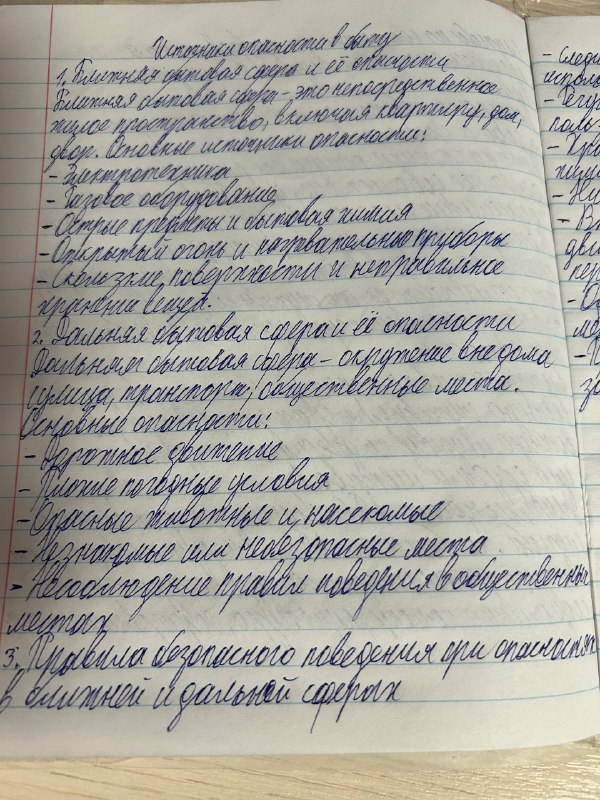 Источники опасности в быту
1. Ближняя бытовая сфера и её опасности
Ближняя бытовая сфера - это непосредственное
жилое пространство, включая квартиру, дом,
двор. Основные источники опасности:
- Электротехника
- Газовое оборудование
- Острые предметы и бытовая химия
- Открытый огонь и нагревательные приборы
- Скользкие поверхности и неправильное
хранение вещей.
2. Дальняя бытовая сфера и её опасности
Дальняя бытовая сфера - окружение вне дома
(улица, транспорт, общественные места.
Основные опасности:
- Дорожное движение
- Плохие погодные условия
- Опасные животные и насекомые
- Незнакомые или небезопасные места
- Несоблюдение правил поведения в общественных
местах
3. Правила безопасного поведения при опасностях
в ближней и дальней сферах